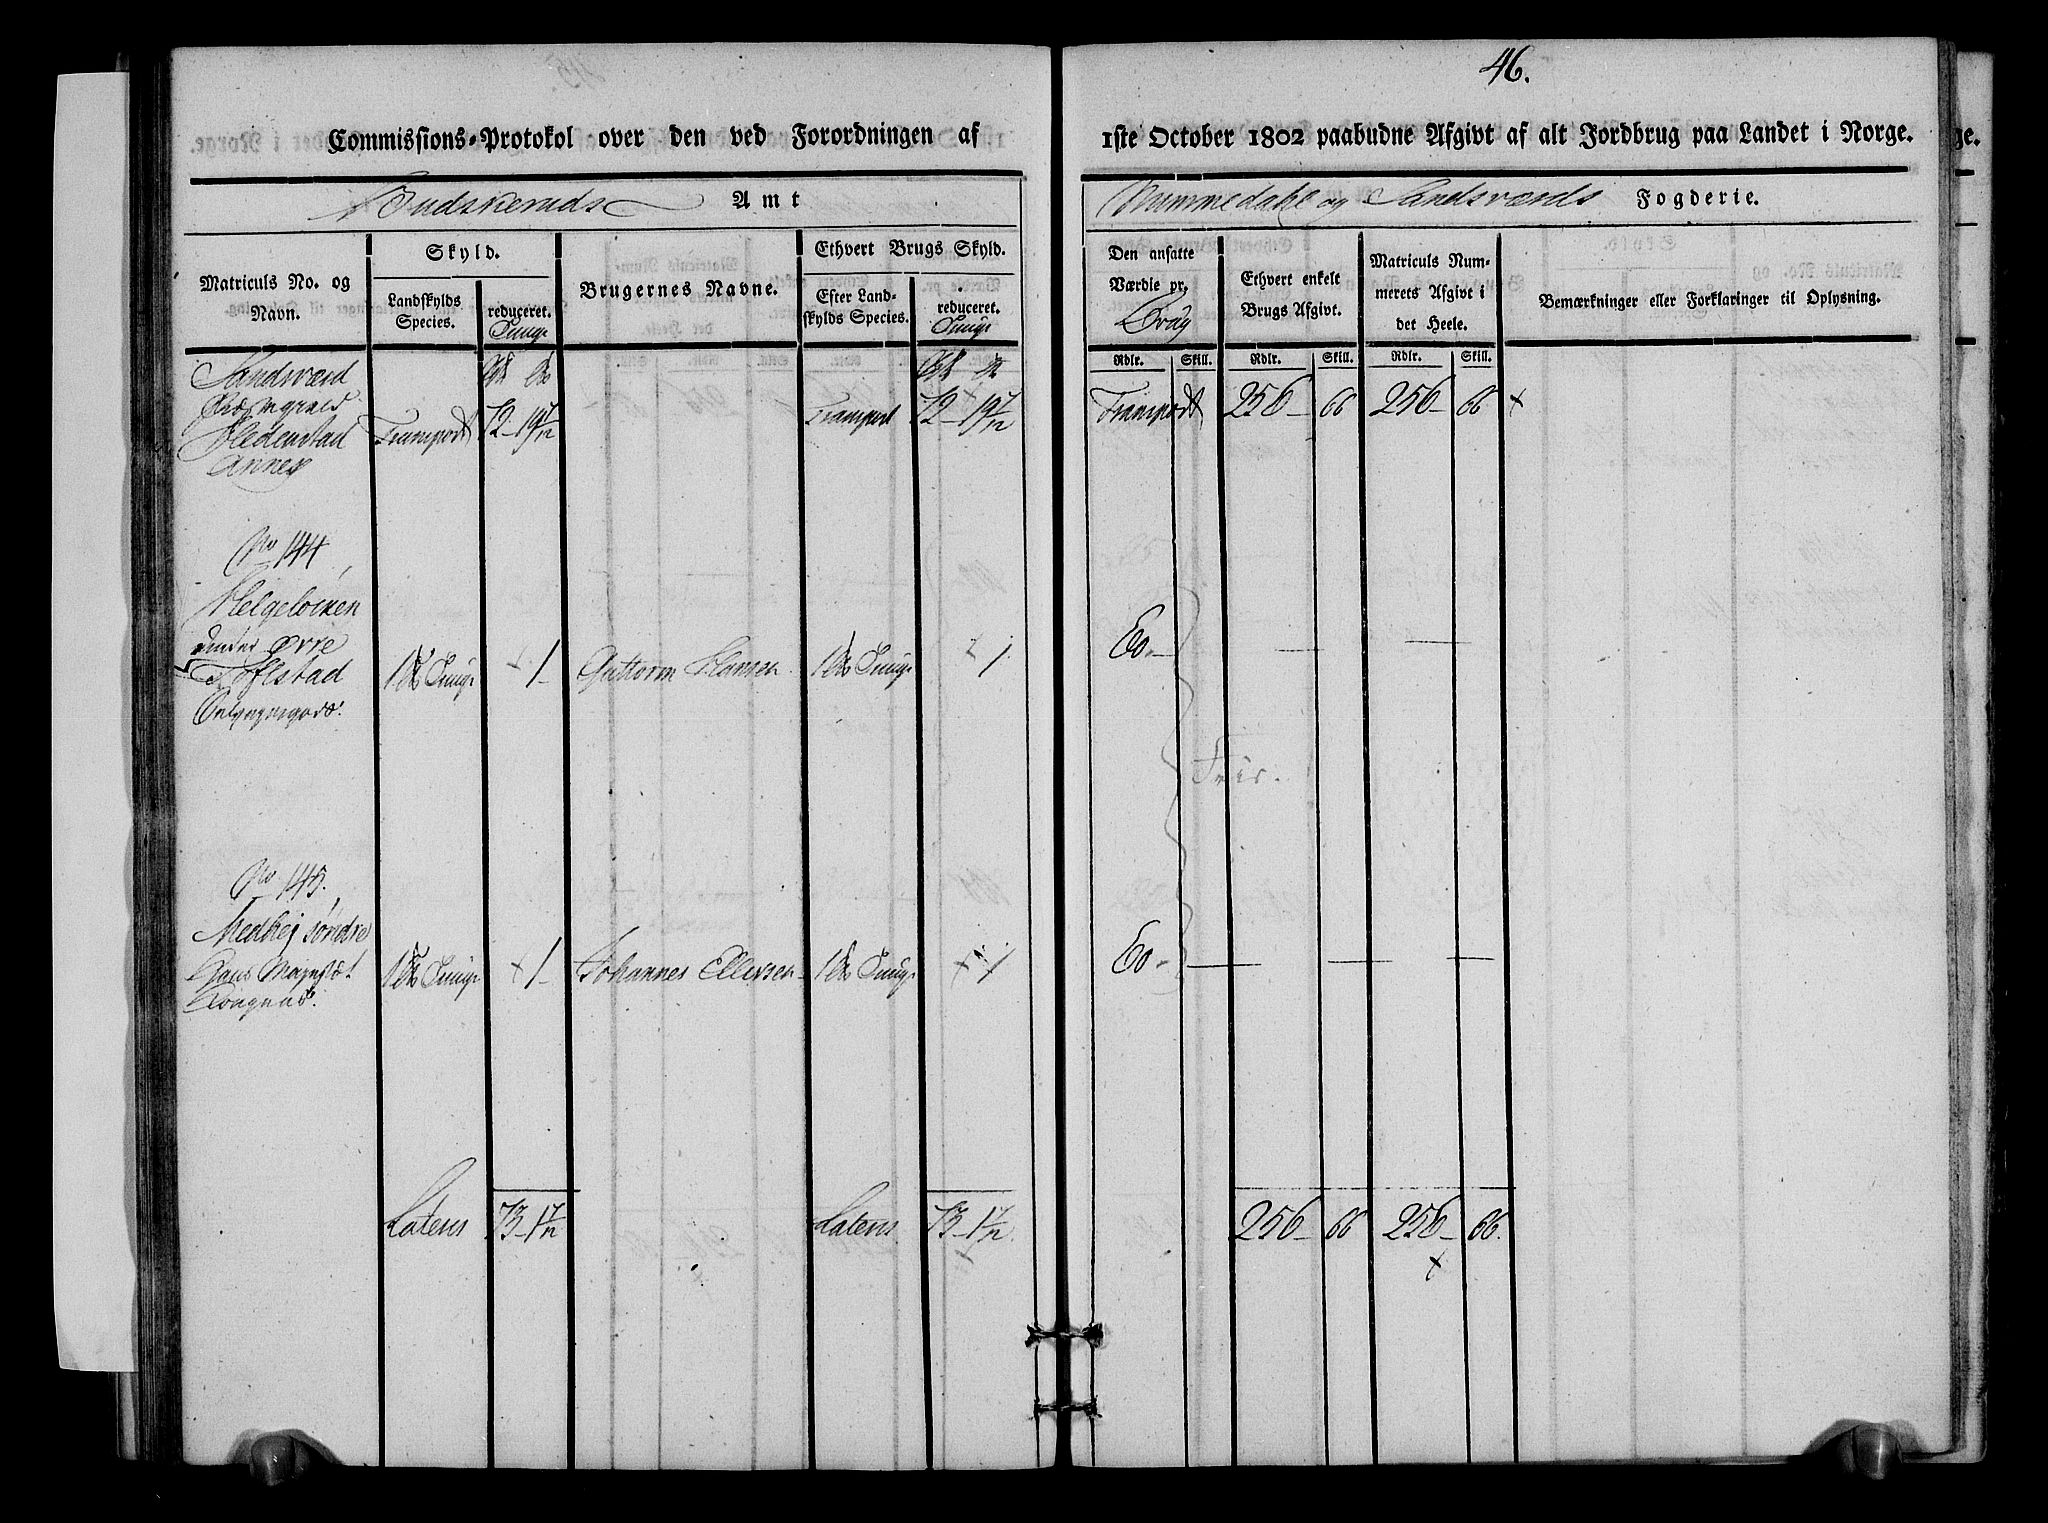 46.
Commissions-Protokol over den ved Forordningen af
1ste October 1802 paabudne Afgivt af alt Jordbrug paa Landet i Norge.
Budskeruds Amt
Nummedahl og Sandsværds Fogderie.
Matriculs No. og Navn.
Skyld.
Landskylds Species.
reduceret.
Tunge
Brugernes Navne.
Ethvert Brugs Skyld.
Efter Landskylds Species.
reduceret.
Tunge
Den ansatte Værdie pr.
Ethvert enkelt Brugs Afgivt.
Matriculs Nummerets Afgivt i det Heele.
Bemærkninger eller Forklaringer til Oplysning.
Rdlr. Skill. Rdlr. Skill. Rdlr. Skill.
Sandsværd
Præstegield
Hedenstad
Annex
Transport 72 - 19 7/12 Transport 72 - 19 7/12 Transport 256 - 66 256 - 66 x
No 144
Helgeløkken
under øvre
Tofstad
1 Tunge 1 - Guttorm Hansen 1 Tunge 1
Friе.
No 145.
Medhej søndre
Hans Mayestæt
Kongens.
1 Tunge x 1 - Johannes Ellevsen - 1 Tunge x 1
Latens 73 - 1 7/12 Latens 73 - 1 7/12. 256 - 66 256 - 66.
x